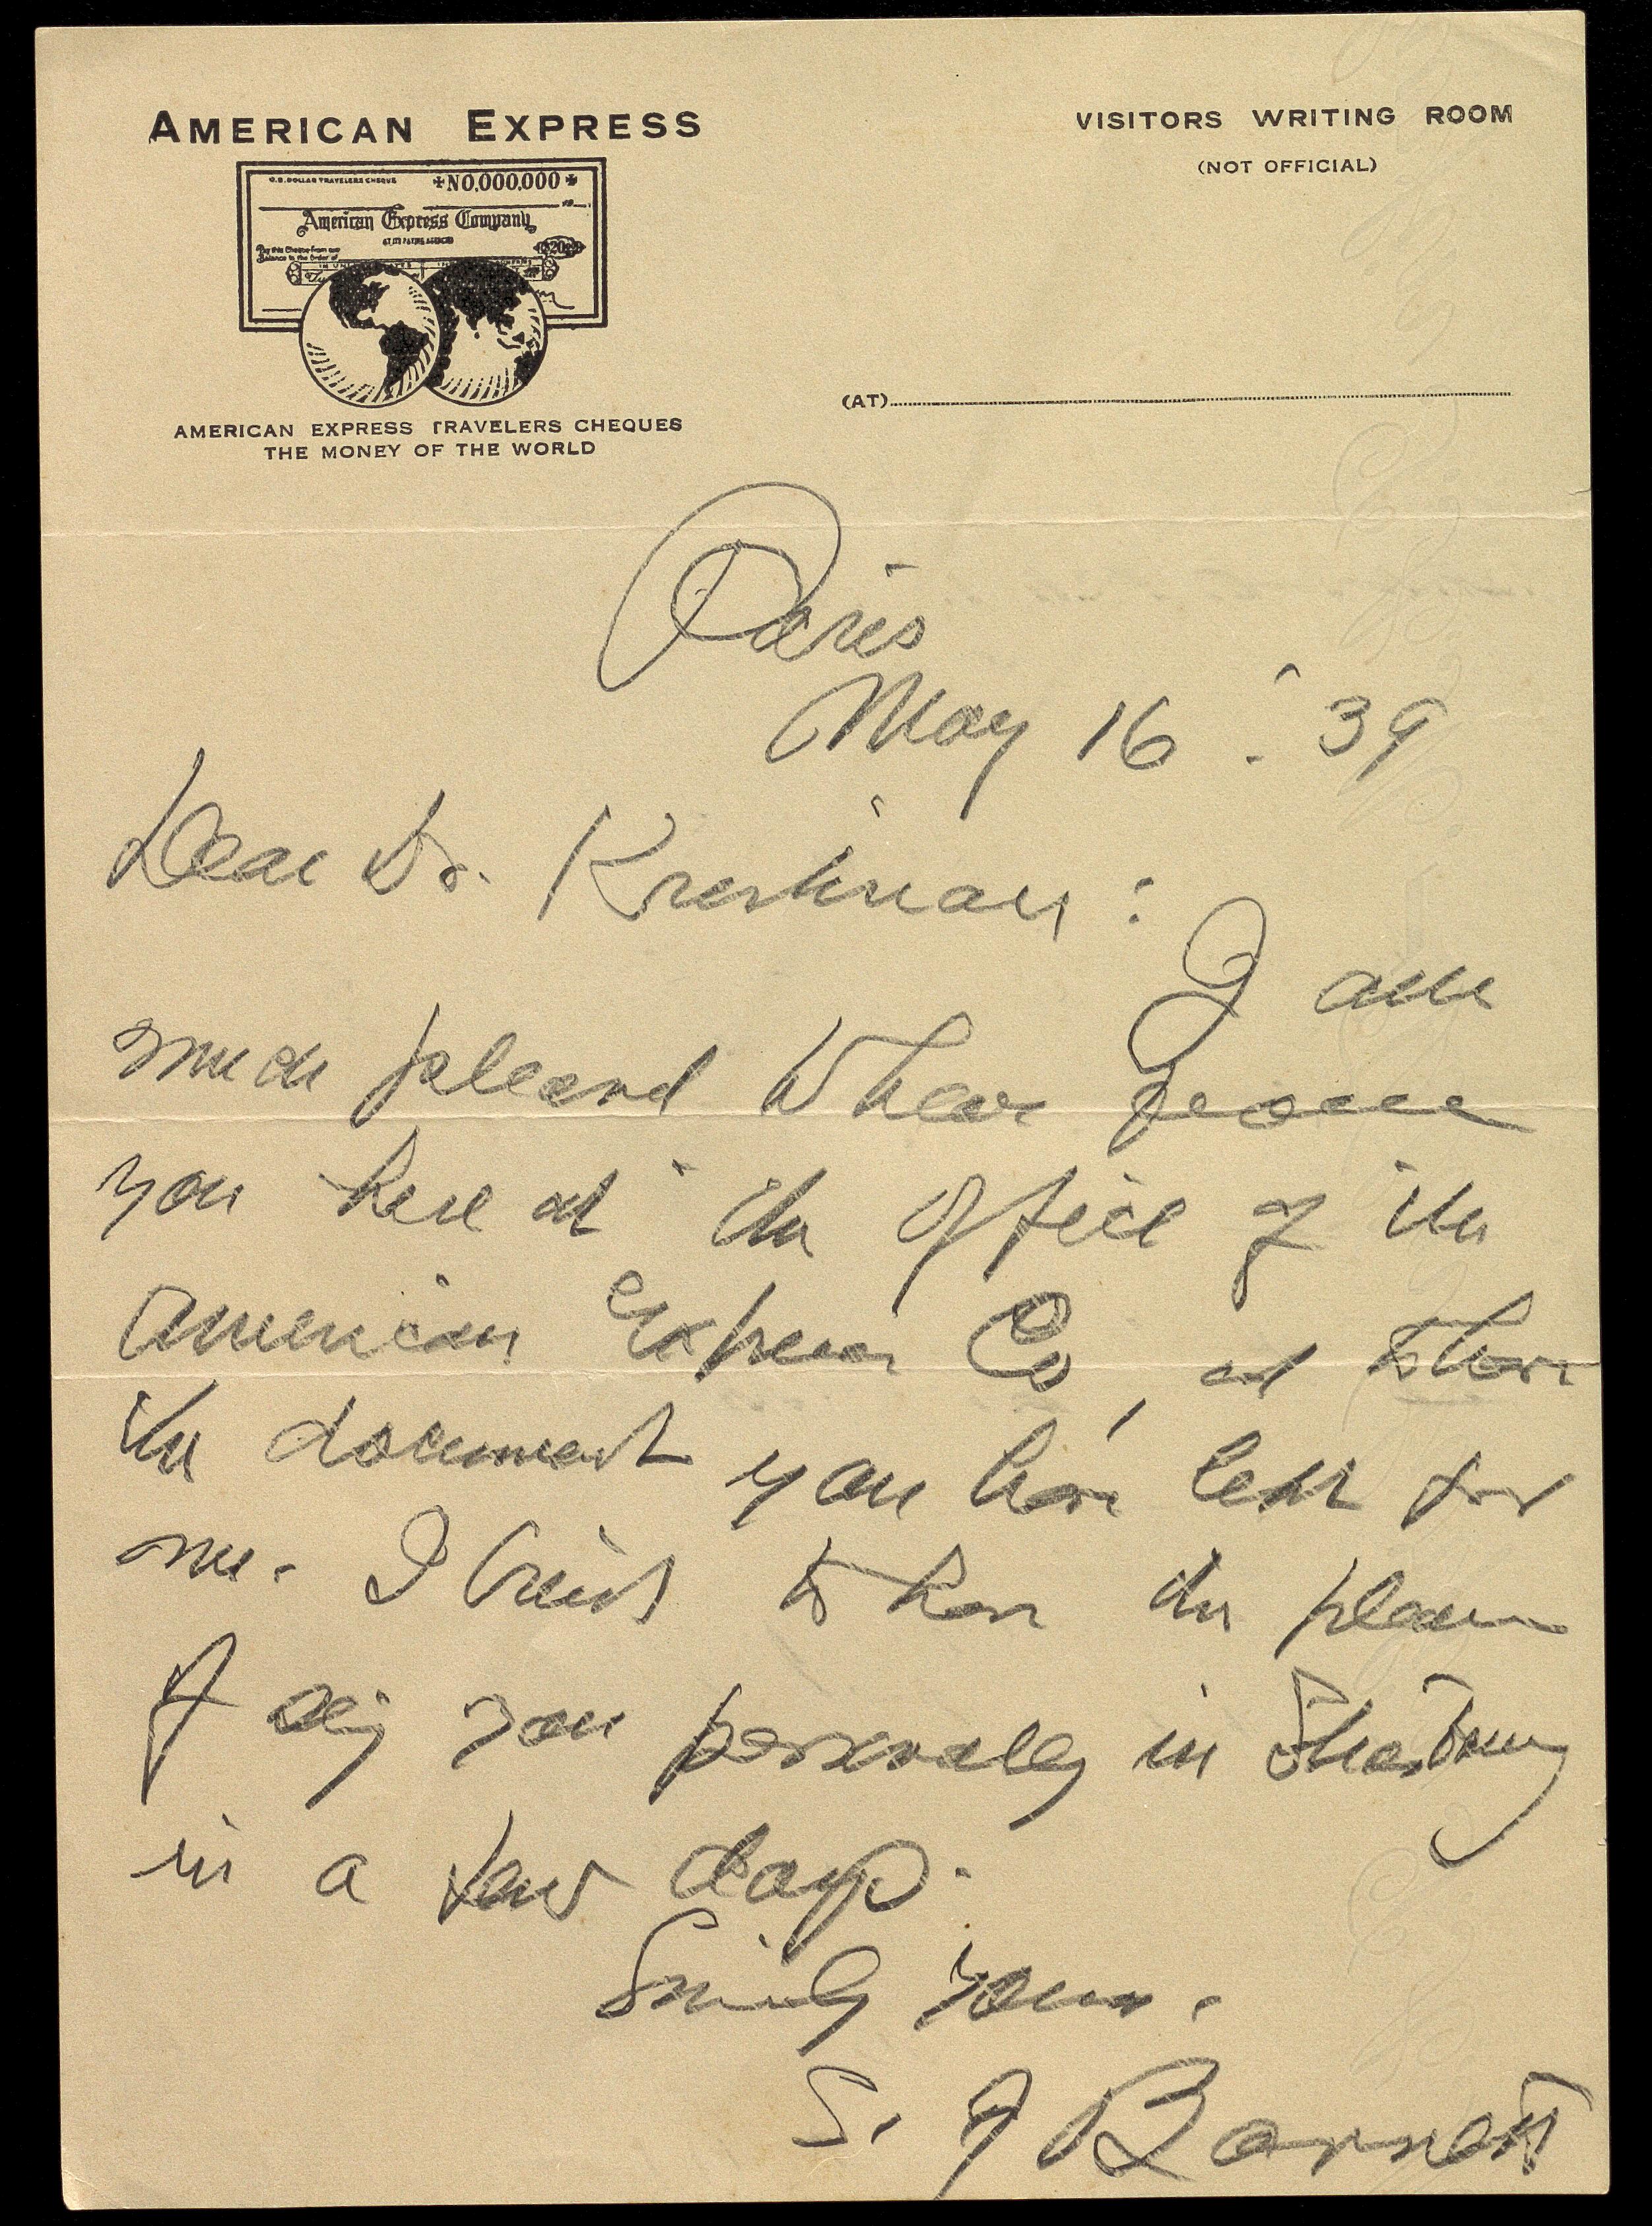 AMERICAN EXPRESS
VISITORS WRITING ROOM
(NOT OFFICIAL)
U.S. DOLLAR TRAVELERS CHEQUE
N0,000,000
American Express Company
(AT)
AMERICAN EXPRESS TRAVELERS CHEQUES
THE MONEY OF THE WORLD
Paris
May 16 . '39
Dear Dr. Krishnan :
I am
much pleased to hear from
you here at the office of the
American Express Co, and to have
the document you have left for
me. I trust to have the pleasure
of seeing you personally in Strasbourg
in a few days.
Sincerely yours.
S. J Barnett